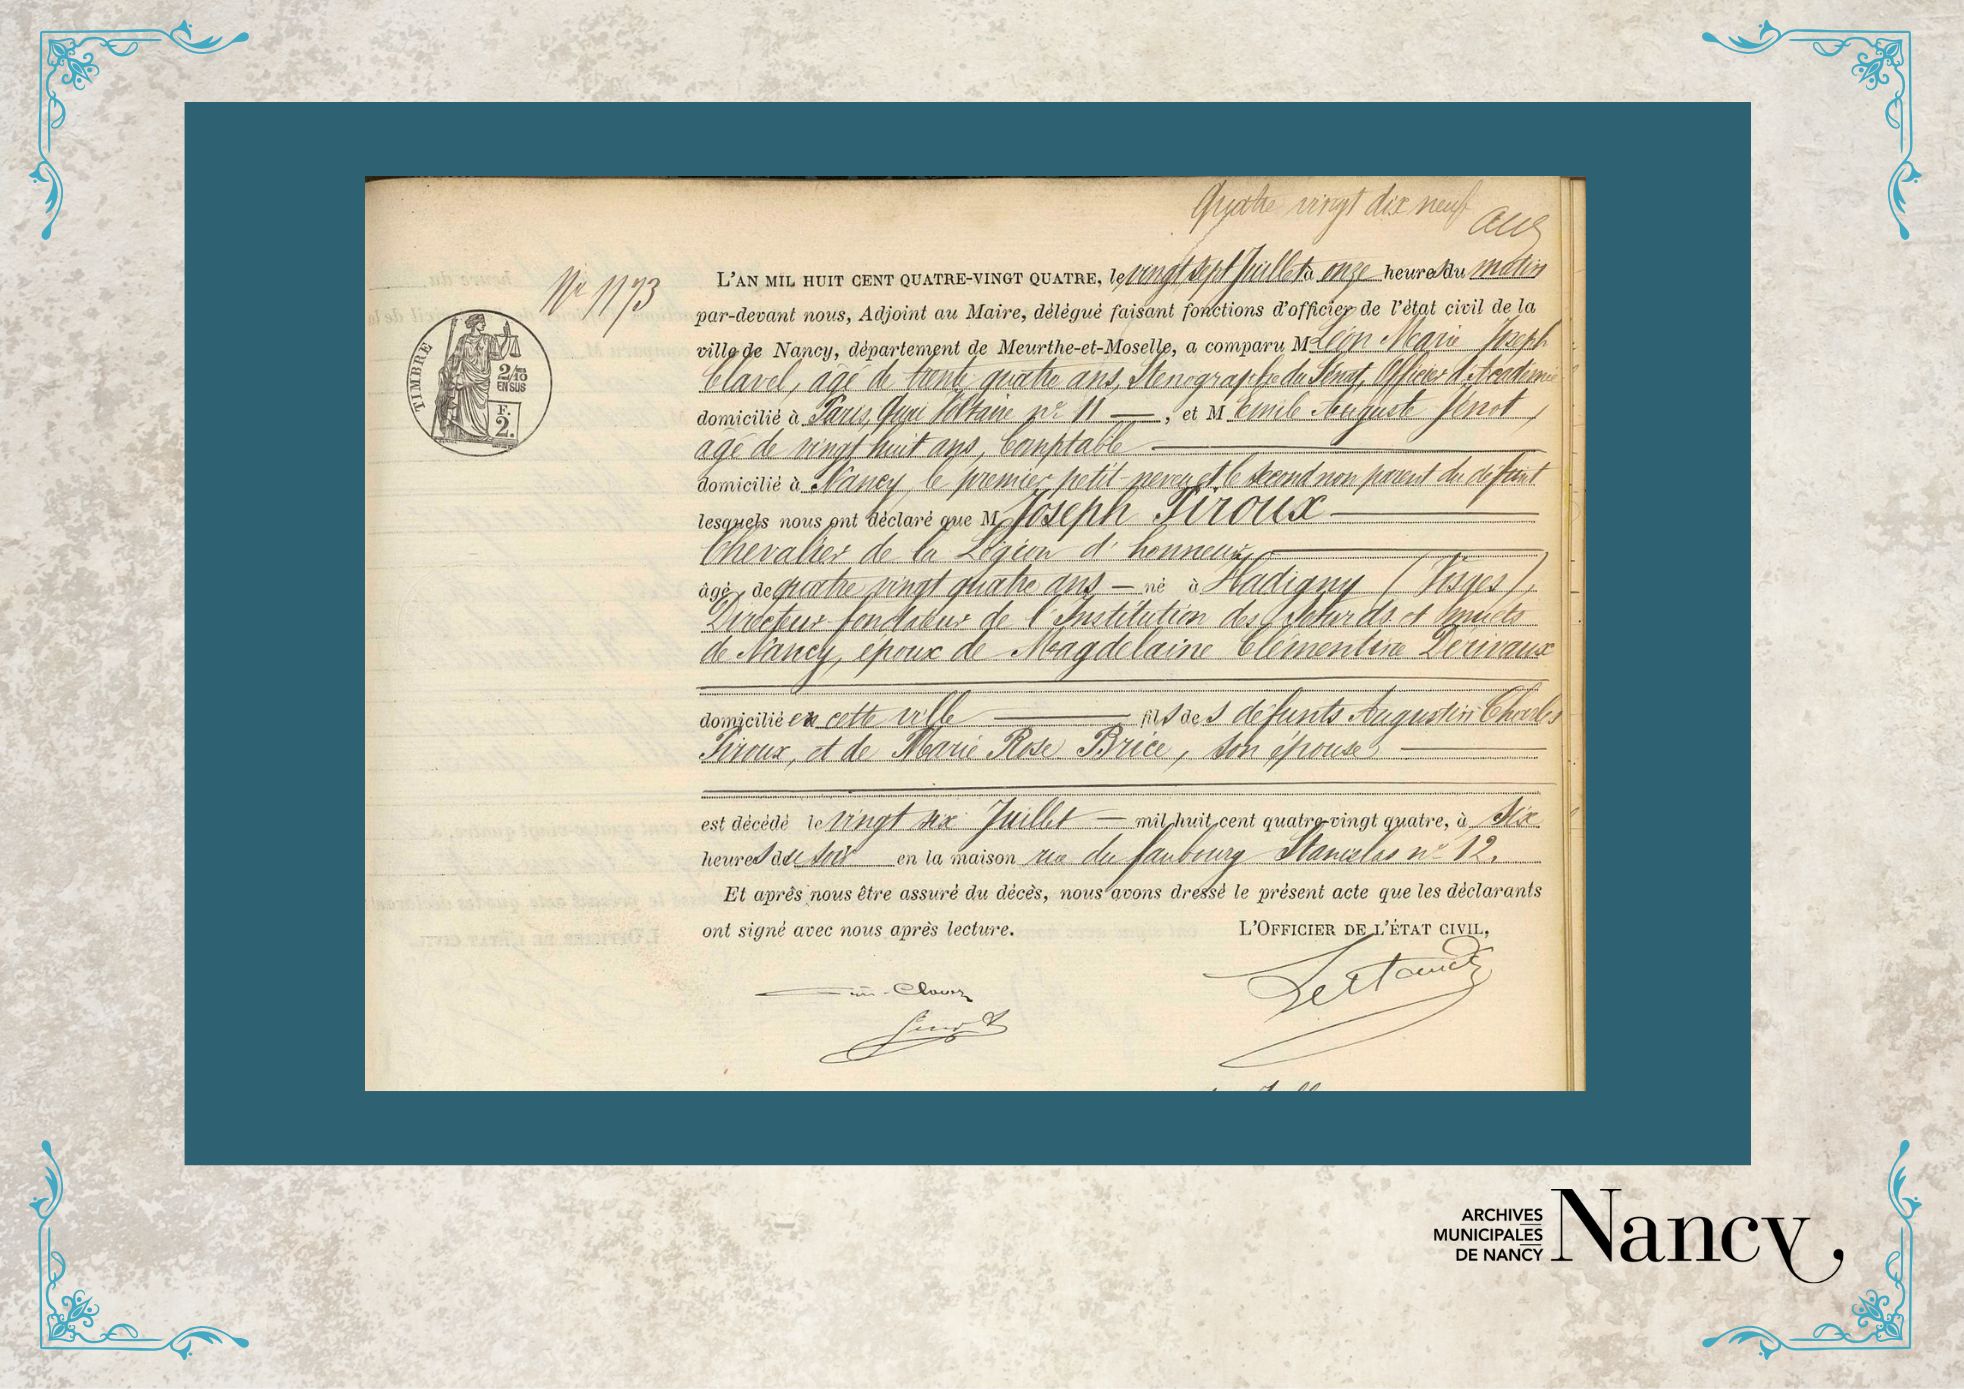 Quatre vingt dix neuf
N° 1173
L'AN MIL HUIT CENT QUATRE-VINGT QUATRE, le vingt sept Juillet à onze heures du matin
par-devant nous, Adjoint au Maire, délégué faisant fonctions d'officier de l'état civil de la
ville de Nancy, département de Meurthe-et-Moselle, a comparu M Léon Marie Joseph
Clavel, agé de trente quatre ans, Sténographe du Sénat, Officier d'Académie
domicilié à Paris, Quai Voltaire n° 11 —, et M Emile Auguste Genot,
agé de vingt huit ans, Comptable —
domicilié à Nancy, le premier petit-neveu et le second non parent du défunt
lesquels nous ont déclaré que M Joseph Piroux —
Chevalier de la Légion d'honneur, —
âgé de quatre vingt quatre ans — né à Hadigny (Vosges),
Directeur fondateur de l'Institution des Sourds et muets
de Nancy, époux de Magdelaine Clémentine Derivaux
domicilié en cette ville — fils des défunts Augustin Charles
Piroux, et de Marie Rose Brice, son épouse —
est décédé le vingt six Juillet — mil huit cent quatre-vingt quatre, à six
heures du soir en la maison rue du faubourg Stanislas n° 12.
Et après nous être assuré du décès, nous avons dressé le présent acte que les déclarants
ont signé avec nous après lecture. L'OFFICIER DE L'ÉTAT CIVIL,
Clavel
Genot
TIMBRE
2/10
EN SUS
F.
2.
ARCHIVES
MUNICIPALES
DE NANCY
Nancy,